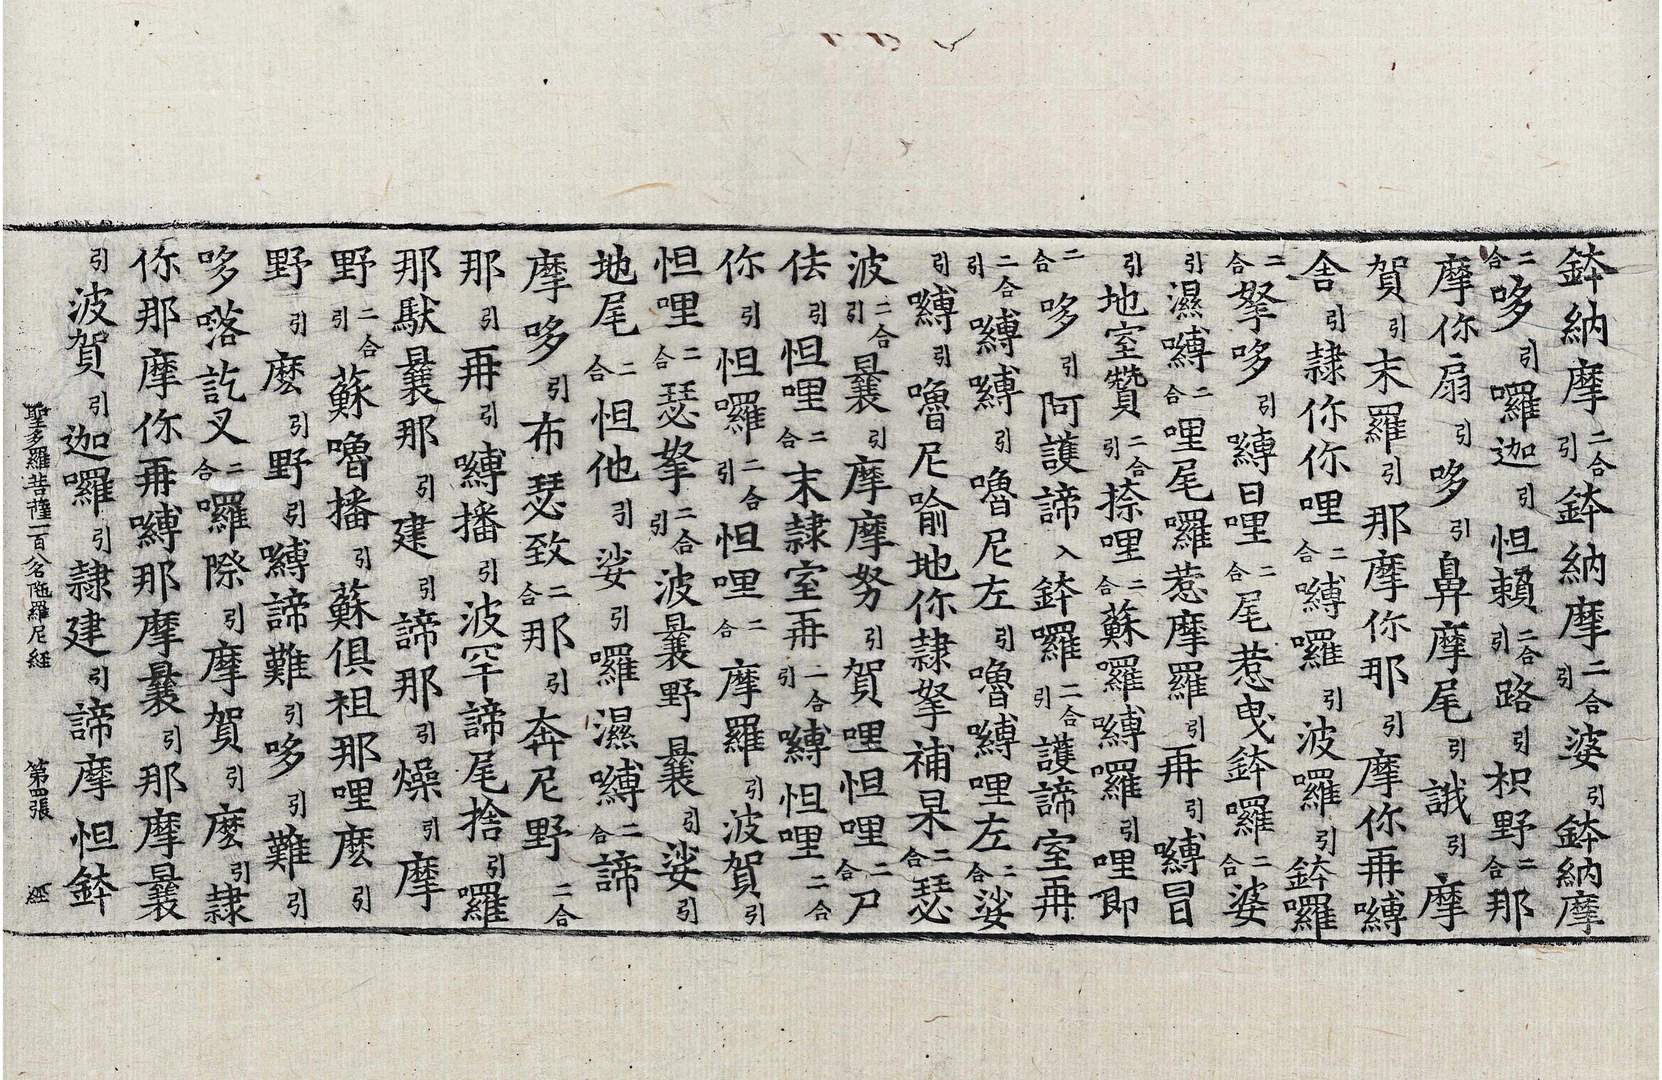 鉢納摩二合引鉢納摩二合引婆引鉢納摩
二合哆引囉迦引怛賴二合引路引枳野二合那
摩你扇引哆引鼻摩尾引誐引摩
賀引末羅引那摩你那引摩你再嚩
舍引隷你你哩二合嚩囉引波囉引鉢囉
二合拏哆引嚩日哩二合尾惹曳鉢囉二合婆
引濕嚩二合哩尾囉惹摩羅引再引嚩冒
引地室贊二合引捺哩二合蘇囉嚩囉引哩即
二合哆引阿護諦入鉢囉引二合護諦室再
二合引嚩嚩引嚕尼左引嚕嚩哩左二合娑
引嚩引嚕尼喻地你隷拏補杲二合瑟
波二合引曩引摩摩努引賀哩怛哩二合尸
佉引怛哩二合末隷室再二合引嚩怛哩二合
你引怛囉二合引怛哩二合摩羅引波賀引
怛哩二合瑟拏二合引波曩野曩引娑引
地尾二合怛他引娑引囉濕嚩二合諦
摩哆引布瑟致二合那引奔尼野二合
那引再引嚩播引波罕諦尾捨引囉
那馱曩那引建引諦那引燥引摩
野二合引蘇嚕播引蘇俱祖那哩麽引
野引麽引野引嚩諦難引哆引難引
哆喀訖叉二合囉際引摩賀引麽引隷
你那摩你再嚩那摩曩引那摩曩
引波賀引迦囉引隷建引諦摩怛鉢
聖多羅菩薩一百八名陁羅尼經 第四張 經